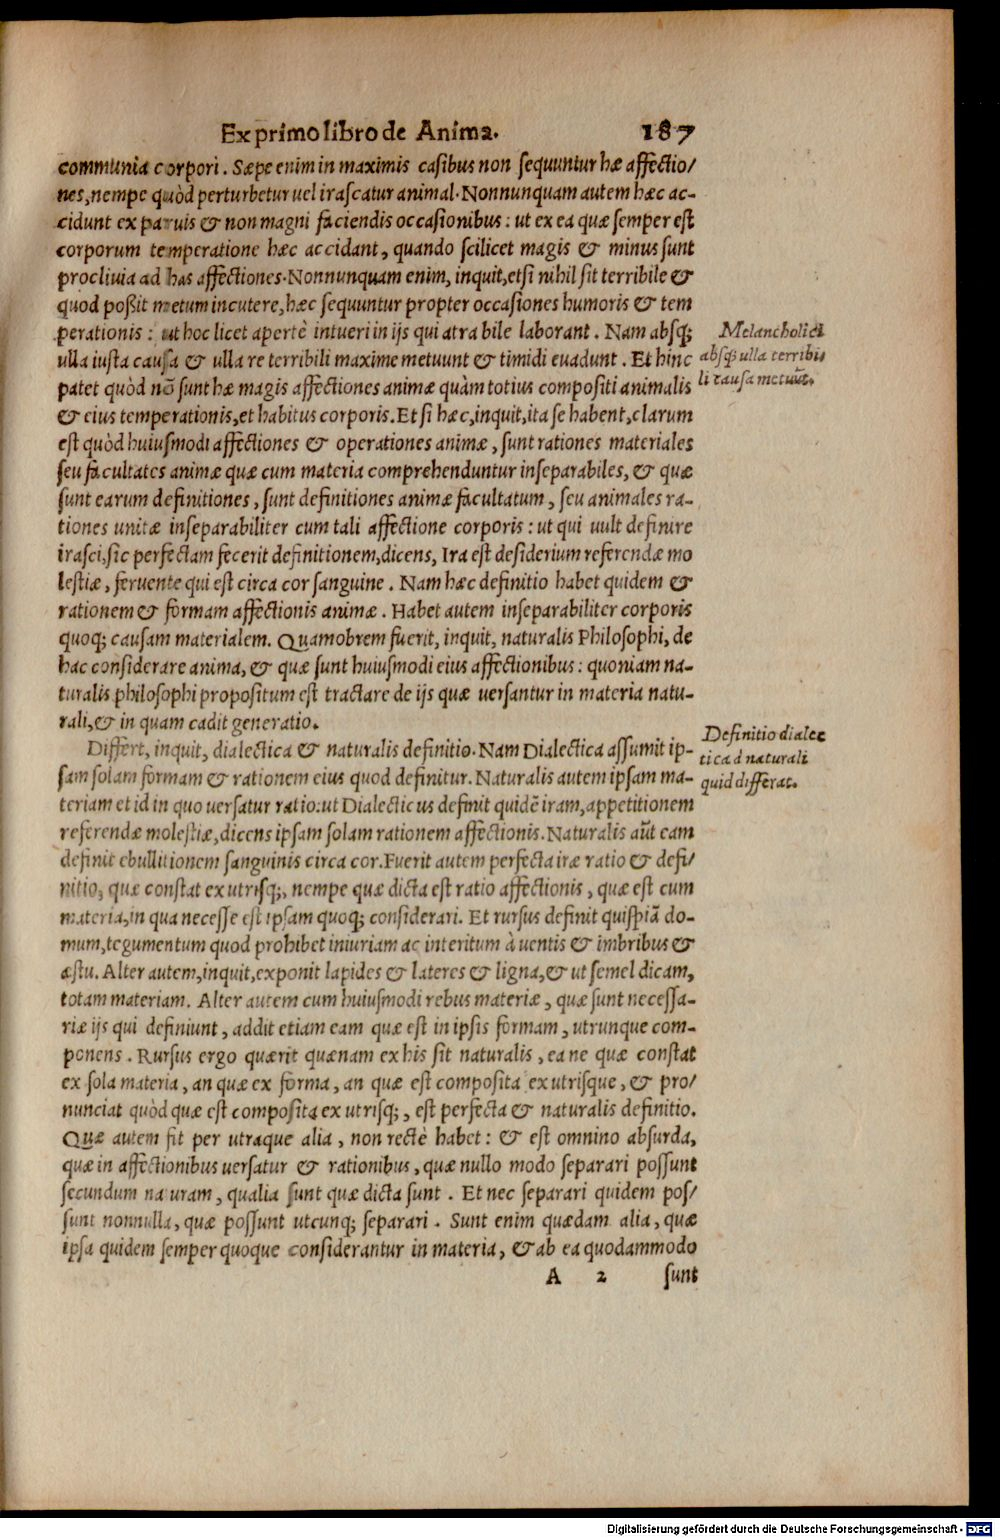 Ex primo libro de Anima. 187
communia corpori. Sæpe enim in maximis casibus non sequuntur hæ affectio/
nes, nempe quòd perturbetur uel irascatur animal. Nonnunquam autem hæc ac-
cidunt ex paruis & non magni faciendis occasionibus: ut ex ea quæ semper est
corporum temperatione hæc accidant, quando scilicet magis & minus sunt
procliuia ad has affectiones. Nonnunquam enim, inquit, etsi nihil sit terribile &
quod poßit metum incutere, hæc sequuntur propter occasiones humoris & tem
perationis: ut hoc licet apertè intueri in ijs qui atra bile laborant. Nam absq;
ulla iusta causa & ulla re terribili maxime metuunt & timidi euadunt. Et hinc
patet quòd nō sunt hæ magis affectiones animæ quàm totius compositi animalis
& eius temperationis, et habitus corporis. Et si hæc, inquit, ita se habent, clarum
est quòd huiusmodi affectiones & operationes animæ, sunt rationes materiales
seu facultates animæ quæ cum materia comprehenduntur inseparabiles, & quæ
sunt earum definitiones, sunt definitiones animæ facultatum, seu animales ra-
tiones unitæ inseparabiliter cum tali affectione corporis: ut qui uult definire
irasci, sic perfectam fecerit definitionem, dicens, Ira est desiderium referendæ mo
lestiæ, feruente qui est circa cor sanguine. Nam hæc definitio habet quidem &
rationem & formam affectionis animæ. Habet autem inseparabiliter corporis
quoq; causam materialem. Quamobrem fuerit, inquit, naturalis Philosophi, de
hac considerare anima, & quæ sunt huiusmodi eius affectionibus: quoniam na-
turalis philosophi propositum est tractare de ijs quæ uersantur in materia natu-
rali, & in quam cadit generatio.
Melancholici
absq; ulla terribi
li causa metuūt.
Differt, inquit, dialectica & naturalis definitio. Nam Dialectica assumit ip-
sam solam formam & rationem eius quod definitur. Naturalis autem ipsam ma-
teriam et id in quo uersatur ratio: ut Dialecticus definit quidē iram, appetitionem
referendæ molestiæ, dicens ipsam solam rationem affectionis. Naturalis aūt eam
definit ebullitionem sanguinis circa cor. Fuerit autem perfecta iræ ratio & defi/
nitio, quæ constat ex utrisq;, nempe quæ dicta est ratio affectionis, quæ est cum
materia, in qua necesse est ipsam quoq; considerari. Et rursus definit quispiā do-
mum, tegumentum quod prohibet iniuriam ac interitum à uentis & imbribus &
æstu. Alter autem, inquit, exponit lapides & lateres & ligna, & ut semel dicam,
totam materiam. Alter autem cum huiusmodi rebus materiæ, quæ sunt necessa-
riæ ijs qui definiunt, addit etiam eam quæ est in ipsis formam, utrunque com-
ponens. Rursus ergo quærit quænam ex his sit naturalis, ea ne quæ constat
ex sola materia, an quæ ex forma, an quæ est composita ex utrisque, & pro/
nunciat quòd quæ est composita ex utrisq;, est perfecta & naturalis definitio.
Quæ autem fit per utraque alia, non rectè habet: & est omnino absurda,
quæ in affectionibus uersatur & rationibus, quæ nullo modo separari possunt
secundum naturam, qualia sunt quæ dicta sunt. Et nec separari quidem pos/
sunt nonnulla, quæ possunt utcunq; separari. Sunt enim quædam alia, quæ
ipsa quidem semper quoque considerantur in materia, & ab ea quodammodo
Definitio dialec
tica à naturali
quid differat.
A 2 sunt
Digitalisierung gefördert durch die Deutsche Forschungsgemeinschaft - DFG